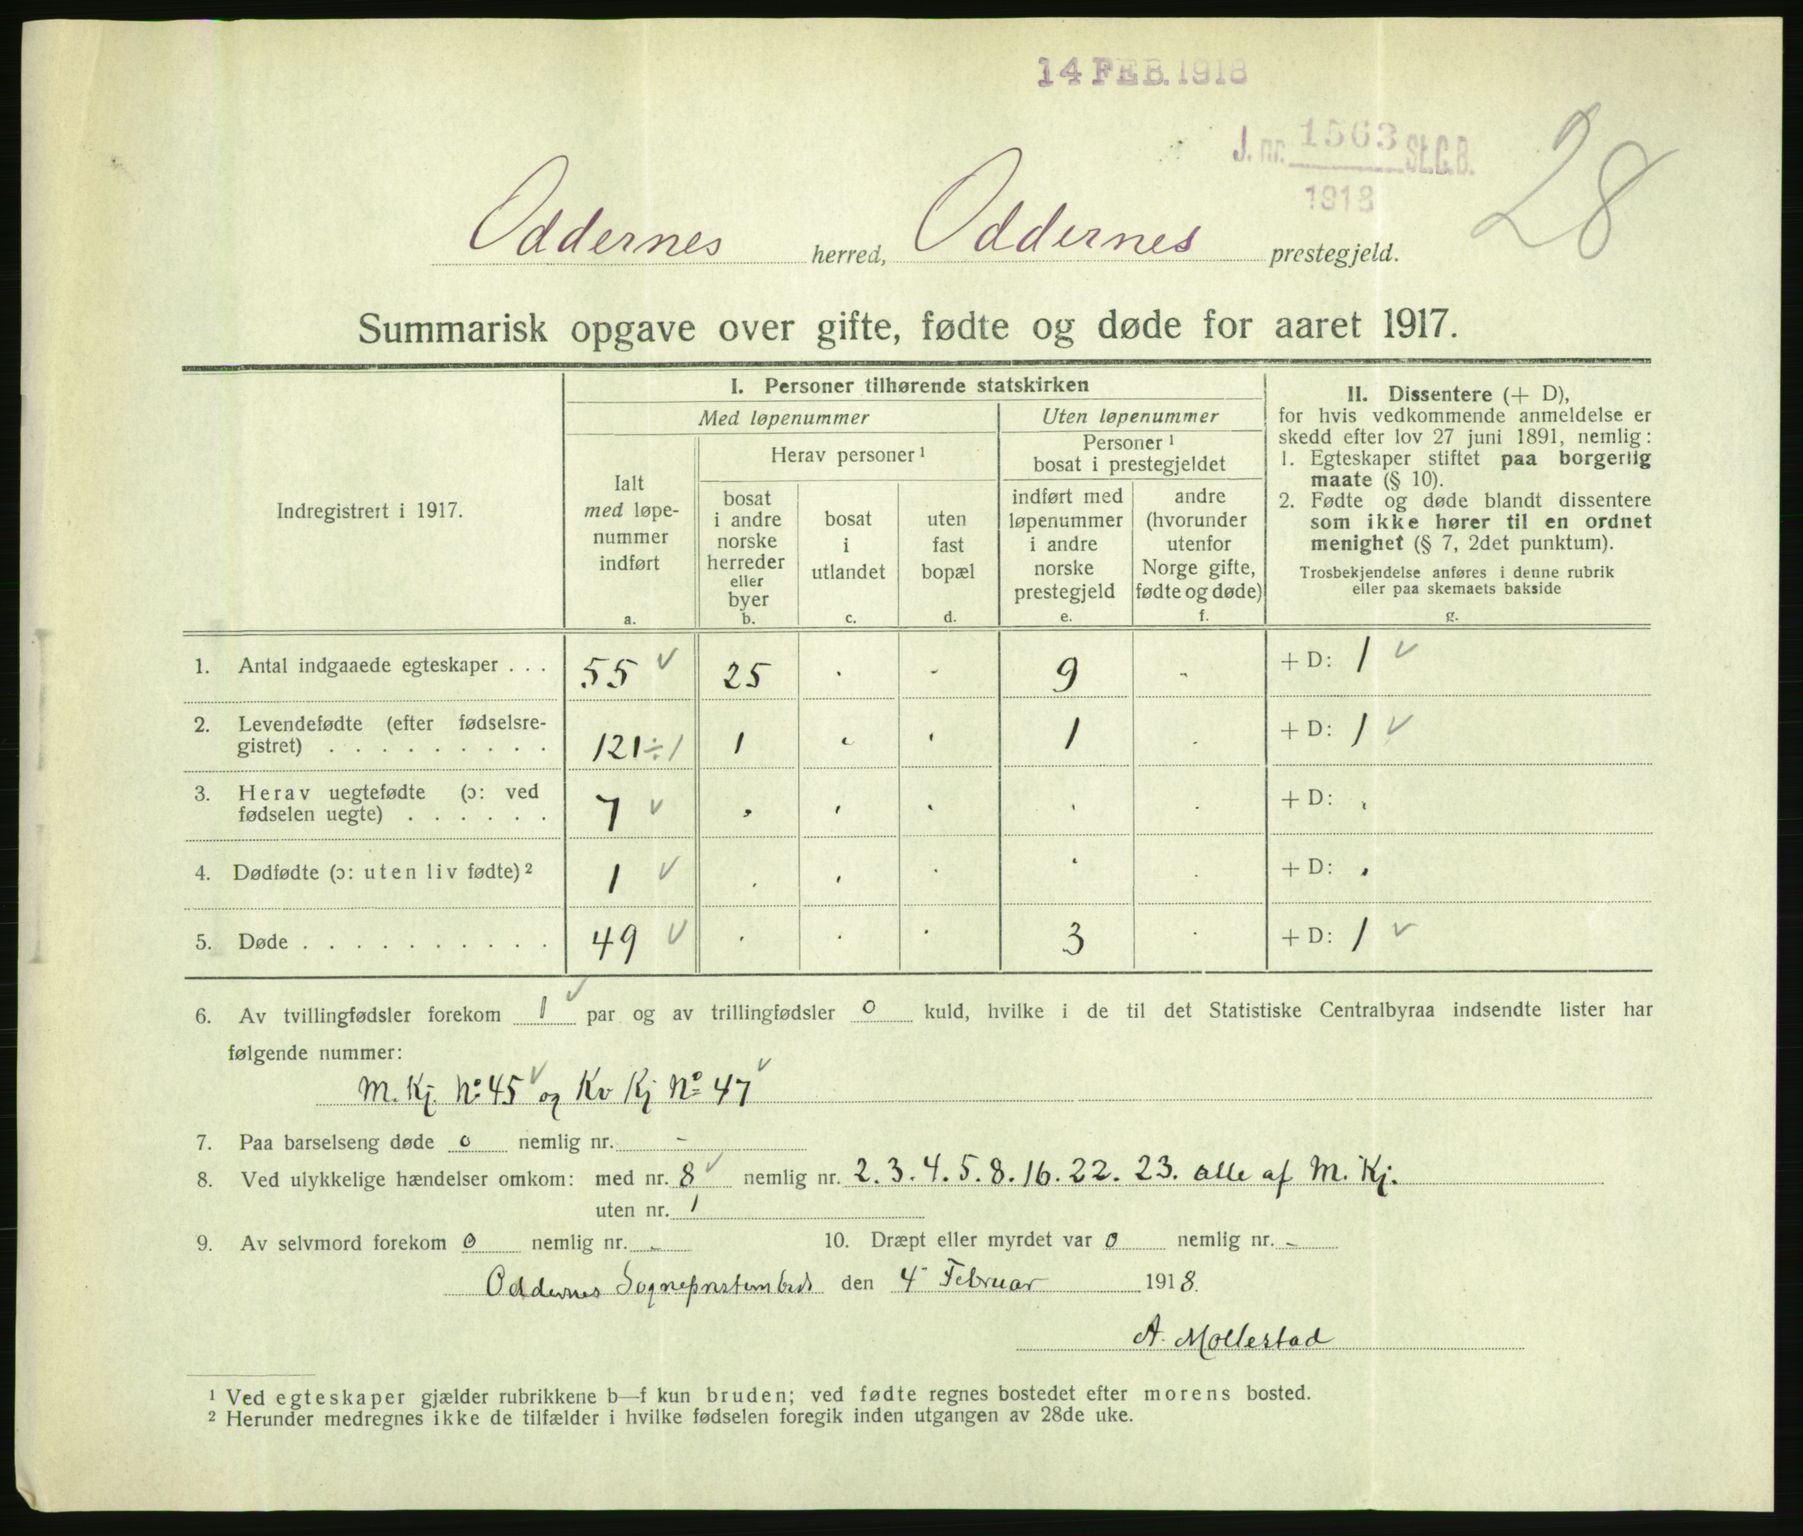 14 FEB. 1918
J. nr. 1563 St.C.B.
1918
28
Oddernes herred, Oddernes prestegjeld.
Summarisk opgave over gifte, fødte og døde for aaret 1917.
Indregistrert i 1917.
I. Personer tilhørende statskirken
Med løpenummer
Uten løpenummer
Ialt
med løpe-
nummer
indført
a.
Herav personer 1
bosat
i andre
norske
herreder
eller
byer
b.
bosat
i
utlandet
c.
uten
fast
bopæl
d.
Personer 1
bosat i prestegjeldet
indført med
løpenummer
i andre
norske
prestegjeld
e.
andre
(hvorunder
utenfor
Norge gifte,
fødte og døde)
f.
II. Dissentere (+ D),
for hvis vedkommende anmeldelse er
skedd efter lov 27 juni 1891, nemlig:
1. Egteskaper stiftet paa borgerlig
maate (§ 10).
2. Fødte og døde blandt dissentere
som ikke hører til en ordnet
menighet (§ 7, 2det punktum).
Trosbekjendelse anføres i denne rubrik
eller paa skemaets bakside
g.
1. Antal indgaaede egteskaper . . . 55 ✓ 25 . - 9 - + D: 1 ✓
2. Levendefødte (efter fødselsre-
gistret) . . . . . . . . . 121 ÷ 1 1 . . 1 . + D: 1 ✓
3. Herav uegtefødte (ɔ: ved
fødselen uegte) . . . . . . 7 ✓ . . . . . + D: .
4. Dødfødte (ɔ: uten liv fødte) 2 1 ✓ . . . . . + D: .
5. Døde . . . . . . . . . . 49 ✓ . . . 3 . + D: 1 ✓
6. Av tvillingfødsler forekom 1 ✓ par og av trillingfødsler 0 kuld, hvilke i de til det Statistiske Centralbyraa indsendte lister har
følgende nummer:
M. Kj. No 45 ✓ og Kv Kj No 47 ✓
7. Paa barselseng døde 0 nemlig nr. -
8. Ved ulykkelige hændelser omkom: med nr. 8 ✓ nemlig nr. 2. 3. 4. 5. 8. 16. 22. 23. alle af M. Kj.
uten nr. 1
9. Av selvmord forekom 0 nemlig nr. - 10. Dræpt eller myrdet var 0 nemlig nr. -
Oddernes den 4 Februar 1918.
A. Mollestad
1 Ved egteskaper gjælder rubrikkene b—f kun bruden; ved fødte regnes bostedet efter morens bosted.
2 Herunder medregnes ikke de tilfælder i hvilke fødselen foregik inden utgangen av 28de uke.